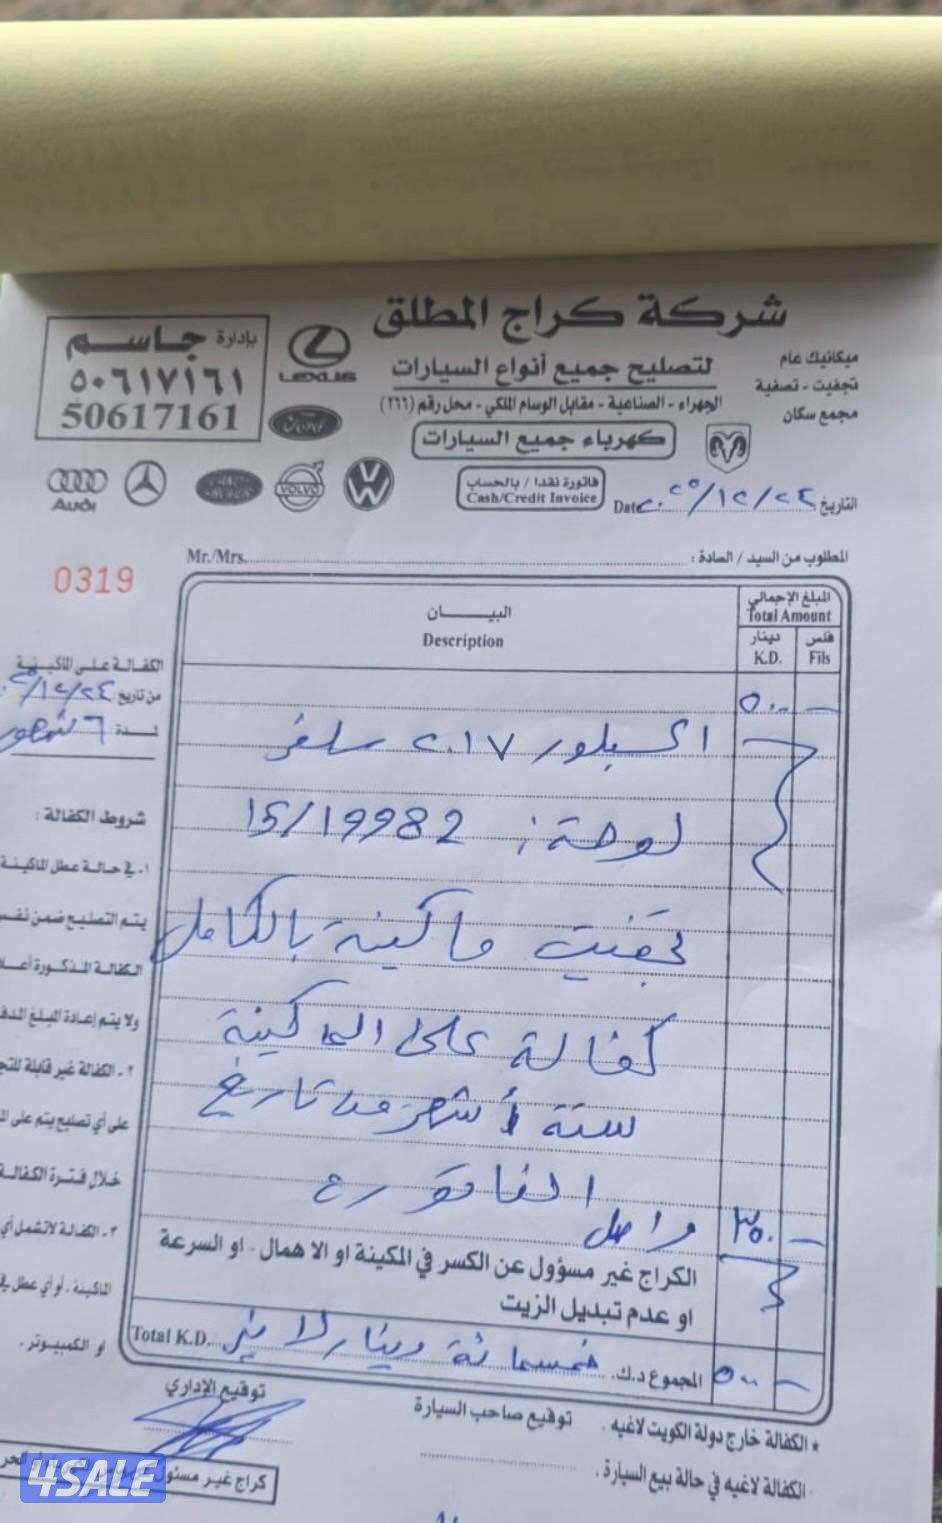 شركة كراج المطلق
لتصليح جميع أنواع السيارات
الجهراء - الصناعية - مقابل الوسام الملكي - محل رقم (٢٦٦)
كهرباء جميع السيارات
فاتورة نقدا / بالحساب
Cash/Credit Invoice
ميكانيك عام
تجفيت - تصفية
مجمع سكان
بإدارة جاسم
٥٠٦١٧١٦١
50617161
LEXUS
Audi
VOLVO
التاريخ ٢٠٢٥/١٢/٢٤ Date
المطلوب من السيد / السادة : Mr./Mrs.
0319
المبلغ الإجمالي
Total Amount
البيـــــان
Description
دينار
K.D.
فلس
Fils
٥٠٠ —
اكسبلور ٢٠١٧ سلفر
لوحة : 15/19982
تجفيت ماكينة بالكامل
كفالة على الماكينة
ستة أشهر من تاريخ
الفاتورة
واصل ٣٥٠ —
الكراج غير مسؤول عن الكسر في المكينة او الاهمال - او السرعة
او عدم تبديل الزيت
المجموع د.ك. خمسمائة دينار لا غير Total K.D.
٥٠٠ —
الكفالة على الماكينة
من تاريخ ٢٠٢٥/١٢/٢٤
لمدة ٦ شهور
شروط الكفالة :
١- في حالة عطل الماكينة
يتم التصليح ضمن نفس
الكفالة المذكورة
ولا يتم إعادة المبلغ
٢- الكفالة غير قابلة
على أي تصليح يتم على
خلال فترة الكفالة
٣- الكفالة لا تشمل أي
الماكينة . او أي عطل
او الكمبيوتر .
توقيع الإداري
توقيع صاحب السيارة
* الكفالة خارج دولة الكويت لاغيه .
الكفالة لاغيه في حالة بيع السيارة .
كراج غير مسئول
4SALE